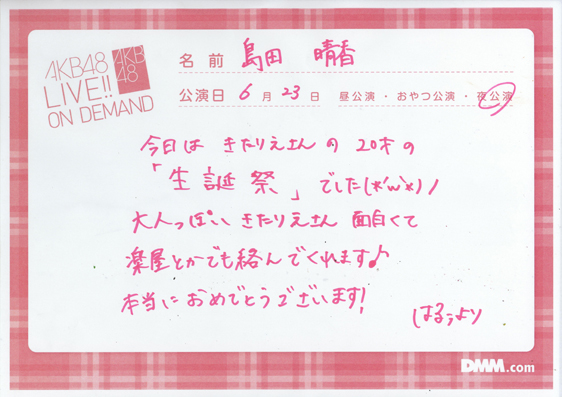 AKB48
LIVE!!
ON DEMAND
AKB
48
名前 島田 晴香
公演日 6月23日 昼公演・おやつ公演・夜公演
今日は きたりえさんの 20才の
「生誕祭」でした(*'ω'*)ノ
大人っぽい きたりえさん 面白くて
楽屋とかでも絡んでくれます♪
本当に おめでとうございます!
はるぅより
DMM.com